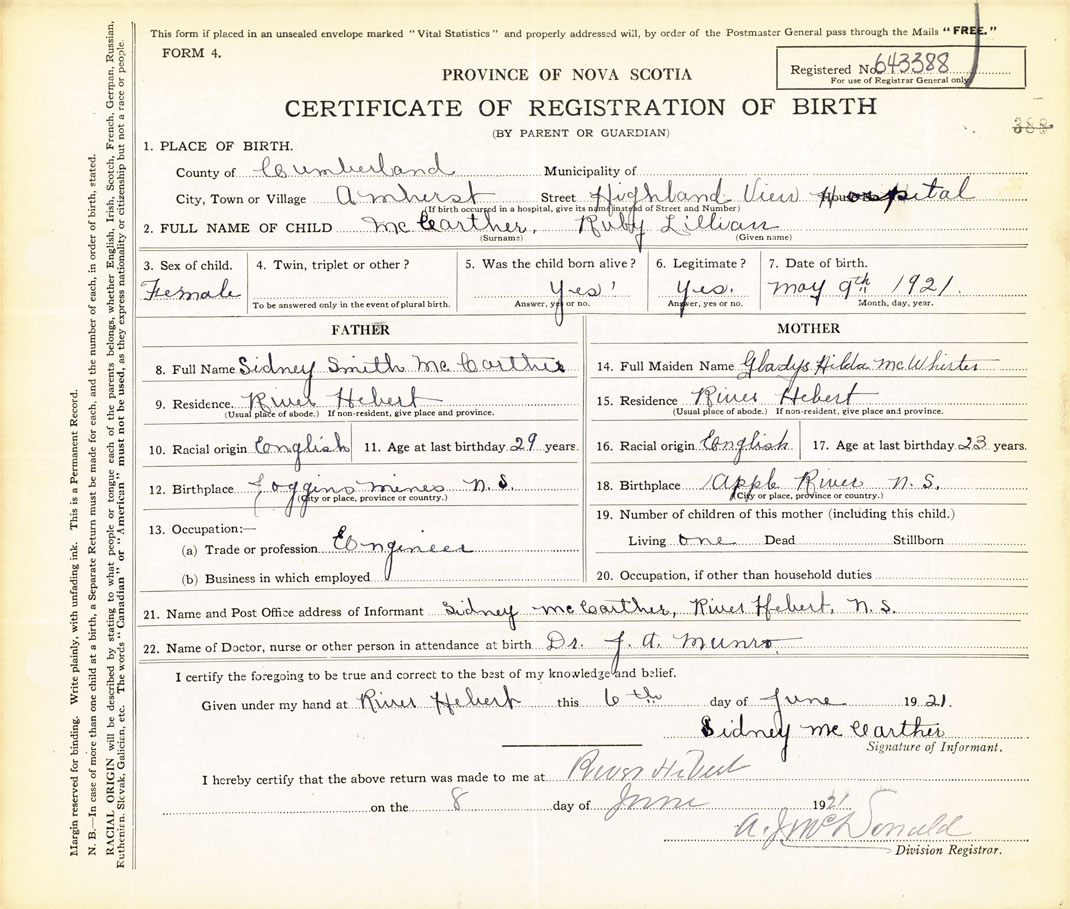 This form if placed in an unsealed envelope marked "Vital Statistics" and properly addressed will, by order of the Postmaster General pass through the Mails "FREE."
FORM 4.
Registered No. 643388
For use of Registrar General only
PROVINCE OF NOVA SCOTIA
CERTIFICATE OF REGISTRATION OF BIRTH
(BY PARENT OR GUARDIAN)
388
1. PLACE OF BIRTH.
County of Cumberland Municipality of
City, Town or Village Amherst Street Highland View Hospital
(If birth occurred in a hospital, give its name instead of Street and Number)
2. FULL NAME OF CHILD McCarther, Ruby Lillian
(Surname) (Given name)
3. Sex of child. 4. Twin, triplet or other? 5. Was the child born alive? 6. Legitimate? 7. Date of birth.
Female Yes Yes. May 9th 1921.
To be answered only in the event of plural birth. Answer, yes or no. Answer, yes or no. Month, day, year.
FATHER MOTHER
8. Full Name Sidney Smith McCarther 14. Full Maiden Name Gladys Hilda McWhirter
9. Residence. River Hebert 15. Residence River Hebert
(Usual place of abode.) If non-resident, give place and province. (Usual place of abode.) If non-resident, give place and province.
10. Racial origin English 11. Age at last birthday 29 years. 16. Racial origin English 17. Age at last birthday 23 years.
12. Birthplace Joggins Mines N.S. 18. Birthplace Apple River N.S.
(City or place, province or country.) (City or place, province or country.)
13. Occupation:— 19. Number of children of this mother (including this child.)
(a) Trade or profession Engineer Living one Dead Stillborn
(b) Business in which employed 20. Occupation, if other than household duties
21. Name and Post Office address of Informant Sidney McCarther, River Hebert, N.S.
22. Name of Doctor, nurse or other person in attendance at birth Dr. J. A. Munro.
I certify the foregoing to be true and correct to the best of my knowledge and belief.
Given under my hand at River Hebert this 6th day of June 1921.
Sidney McCarther
Signature of Informant.
I hereby certify that the above return was made to me at River Hebert
on the 8 day of June 1921
A. J. McDonald
Division Registrar.
Margin reserved for binding. Write plainly, with unfading ink. This is a Permanent Record.
N. B.—In case of more than one child at a birth, a Separate Return must be made for each, and the number of each, in order of birth, stated.
RACIAL ORIGIN will be described by stating to what people or tongue each of the parents belongs, whether English, Irish, Scotch, French, German, Russian,
Ruthenien, Slovak, Galicien, etc. The words "Canadian" or "American" must not be used, as they express nationality or citizenship but not a race or people.